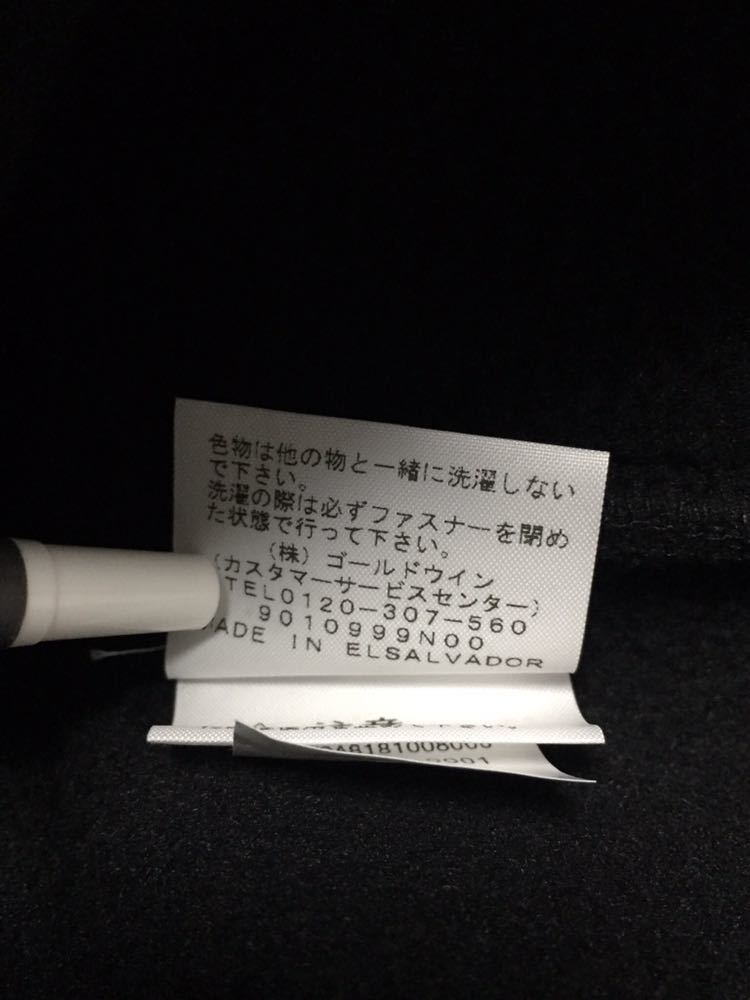 色物は他の物と一緒に洗濯しない
で下さい。
洗濯の際は必ずファスナーを閉め
た状態で行って下さい。
(株) ゴールドウイン
(カスタマーサービスセンター)
TEL0120-307-560
9010999N00
MADE IN ELSALVADOR
注意